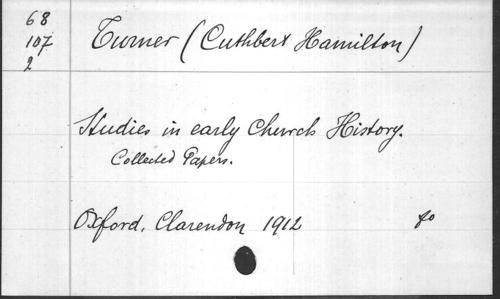 68
107
2
Turner (Cuthbert Hamilton)
Studies in early Church History.
Collected Papers.
Oxford, Clarendon 1912
fo